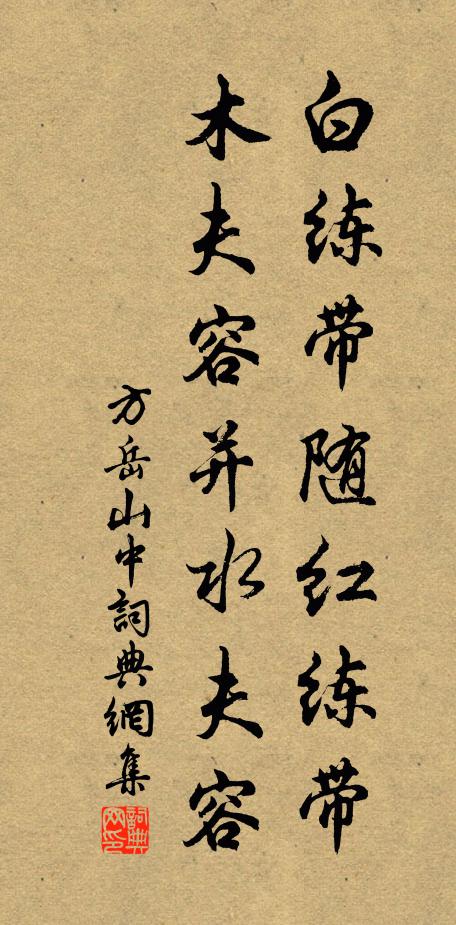 白练带随红练带
木夫容并水夫容
方岳山中詞典網集
詞典网印